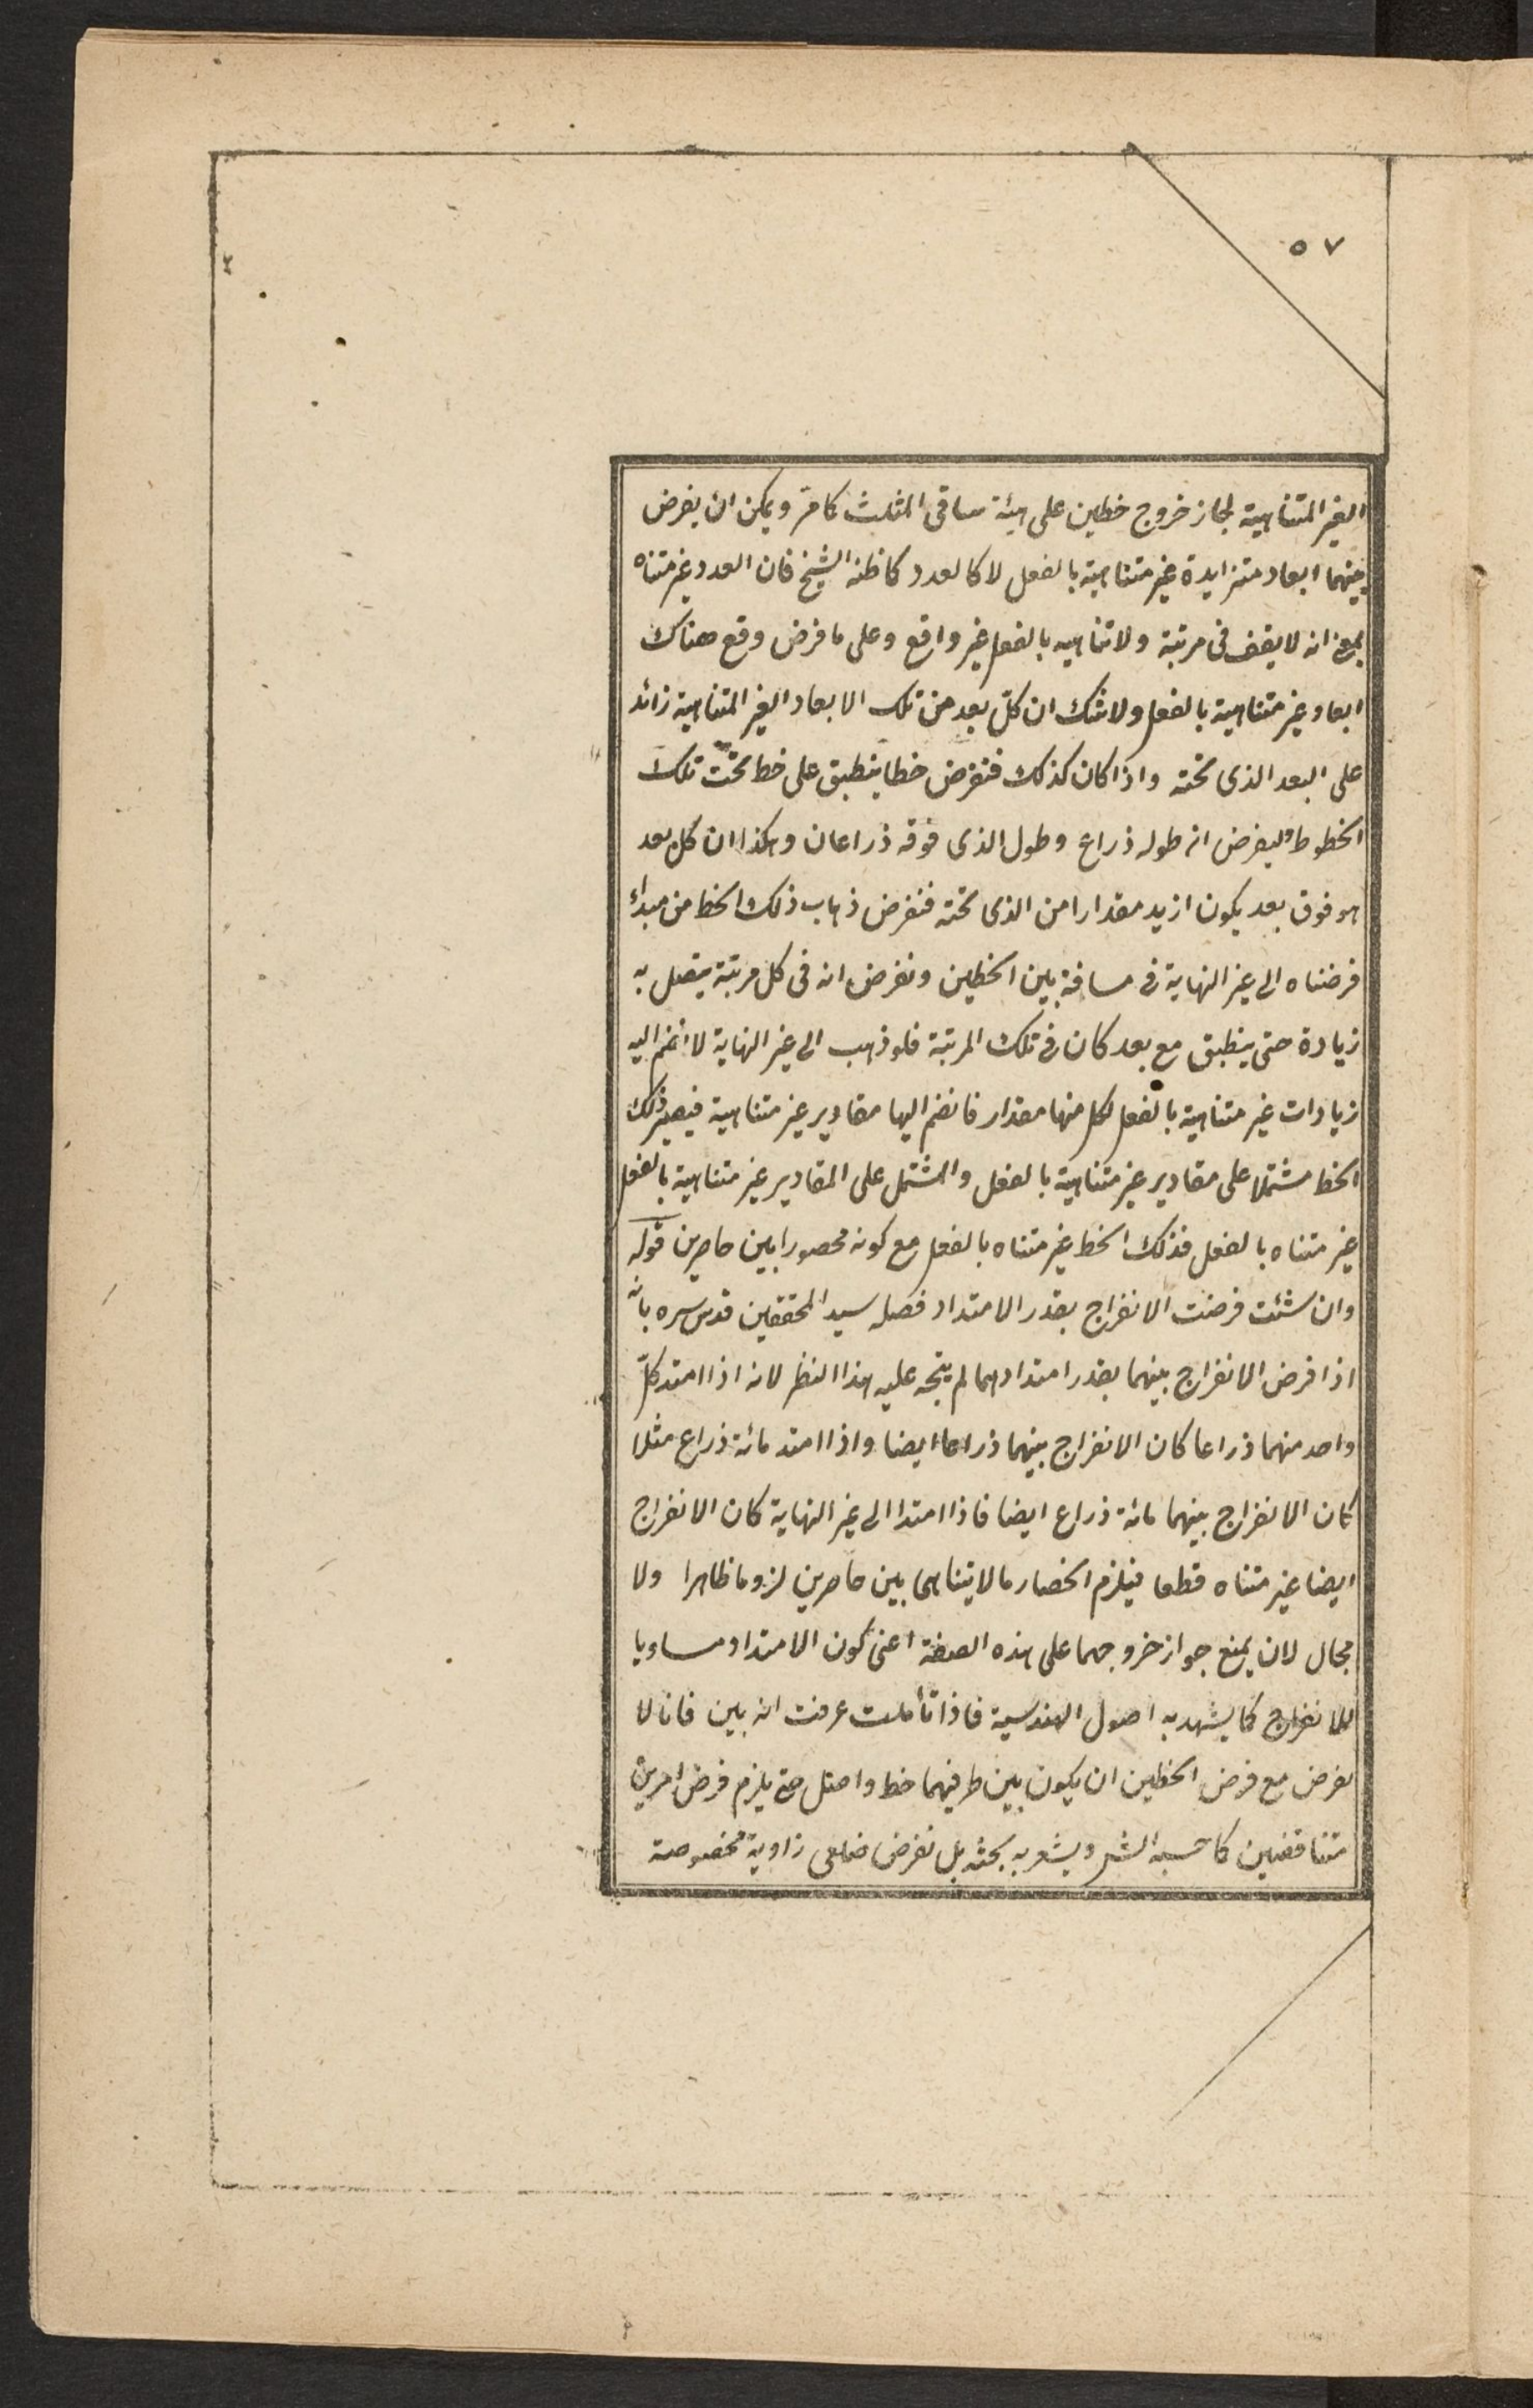 ٥٧
الغیر المتناهیة لجاز خروج خطین علی هیئة ساقی المثلث کما مرّ و یمکن ان یفرض
بینهما ابعاد متزایدة غیر متناهیة بالفعل لا کالعدد کما ظنه الشیخ فان العدد غیر متناه
بمعنی انه لا یقف فی مرتبة ولا تناهیه بالفعل غیر واقع وعلی ما فرض وقع هناک
ابعاد غیر متناهیة بالفعل ولا شک ان کلّ بعد من تلک الابعاد الغیر المتناهیة زائد
علی البعد الذی تحته واذا کان کذلک فنفرض خطا ینطبق علی خط تحت تلک
الخطوط ولیفرض انه طوله ذراع وطول الذی فوقه ذراعان وهکذا ان کل بعد
هو فوق بعد یکون ازید مقدارا من الذی تحته فنفرض ذهاب ذلک الخط من مبدأ
فرضناه الی غیر النهایة فی مسافة بین الخطین ونفرض انه فی کل مرتبة یتصل به
زیادة حتی ینطبق مع بعد کان فی تلک المرتبة فلو ذهب الی غیر النهایة لانضم الیه
زیادات غیر متناهیة بالفعل لکل منها مقدار فانضم الیها مقادیر غیر متناهیة فیصیر ذلک
الخط مشتملا علی مقادیر غیر متناهیة بالفعل والمشتمل علی المقادیر غیر متناهیة بالفعل
غیر متناه بالفعل فذلک الخط غیر متناه بالفعل مع کونه محصورا بین حاصرین قوله
وان شئت فرضت الانفراج بقدر الامتداد فصله سید المحققین قدس سره بانه
اذا فرض الانفراج بینهما بقدر امتدادهما لم یتجه علیه هذا النظر لانه اذا امتد کلّ
واحد منهما ذراعا کان الانفراج بینهما ذراعا ایضا واذا امتد مائة ذراع مثلا
کان الانفراج بینهما مائة ذراع ایضا فاذا امتدا الی غیر النهایة کان الانفراج
ایضا غیر متناه قطعا فیلزم انحصار ما لا یتناهی بین حاصرین لزوما ظاهرا ولا
مجال لان یمنع جواز خروجهما علی هذه الصفة اعنی کون الامتداد مساویا
للانفراج کما یشهد به اصول الهندسیة فاذا تأملت عرفت انه بین فانا لا
نفرض مع فرض الخطین ان یکون بین طرفیهما خط واصل حتی یلزم فرض امرین
متناقضین کما حسبه الشر ویشعر به بحثه بل نفرض ضلعی زاویة مخصوصة